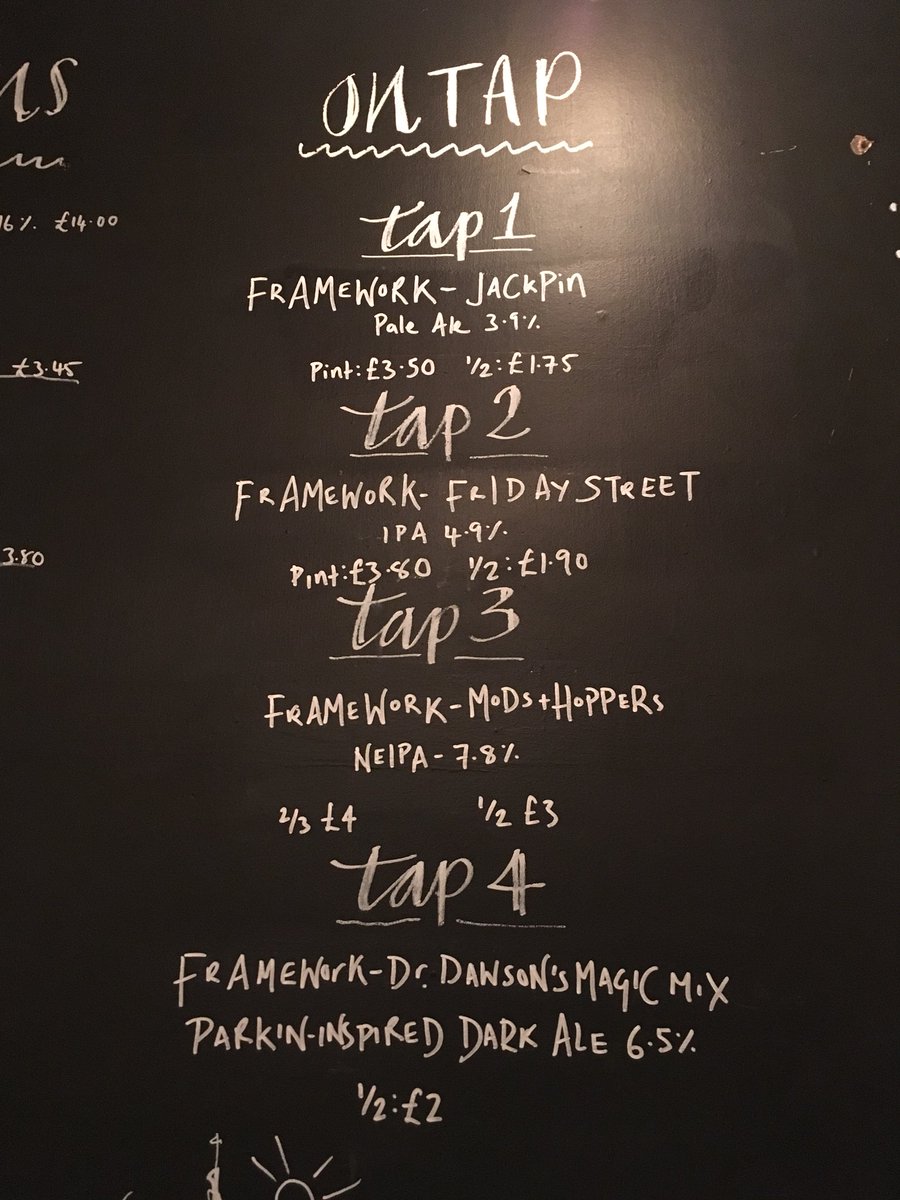 ON TAP
16%. £14.00
£3.45
3.80
tap 1
FRAMEWORK - JACKPIN
Pale Ale 3.9%
Pint: £3.50 1/2: £1.75
tap 2
FRAMEWORK - FRIDAY STREET
IPA 4.9%
Pint: £3.80 1/2: £1.90
tap 3
FRAMEWORK - MODS + HOPPERS
NEIPA - 7.8%
2/3 £4 1/2 £3
tap 4
FRAMEWORK - Dr. DAWSON'S MAGIC MIX
PARKIN-INSPIRED DARK ALE 6.5%
1/2: £2